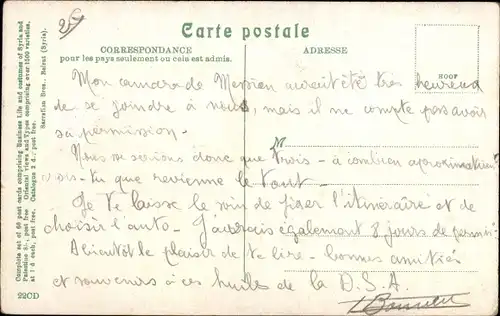 Carte postale
CORRESPONDANCE
pour les pays seulement ou cela est admis.
ADRESSE
Mon camarade Messian aurait été très heureux
de se joindre à nous, mais il ne compte pas avoir
sa permission.
Nous ne serions donc que trois - à combien aproximativement
crois-tu que revienne le tout -
Je te laisse le soin de fixer l'itinéraire et de
choisir l'auto - J'aurais également 8 jours de permi:
A bientôt le plaisir de te lire - bonnes amitiés
et souvenirs à ces huiles de la D.S.A.
Complete set of 60 post cards comprising Business Life and costumes of Syria and
Palestine 5/-, post free. Oriental views and Types comprising over 1500 varieties,
at 1 d. each, post free. Catalogue 2 d., post free.
Sarrafian Bros., Beirut (Syria).
22CD